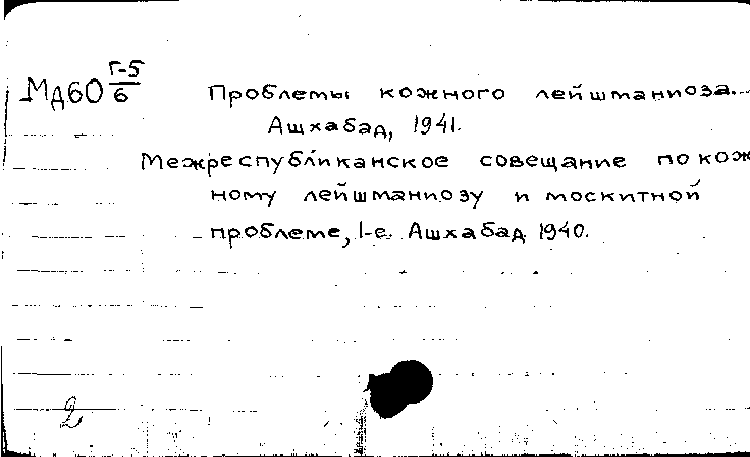 Мд60 Г-5/6
Проблемы кожного лейшманиоза...
Ашхабад, 1941.
Межреспубликанское совещание по кож
ному лейшманиозу и москитной
проблеме, 1-е. Ашхабад 1940.
2